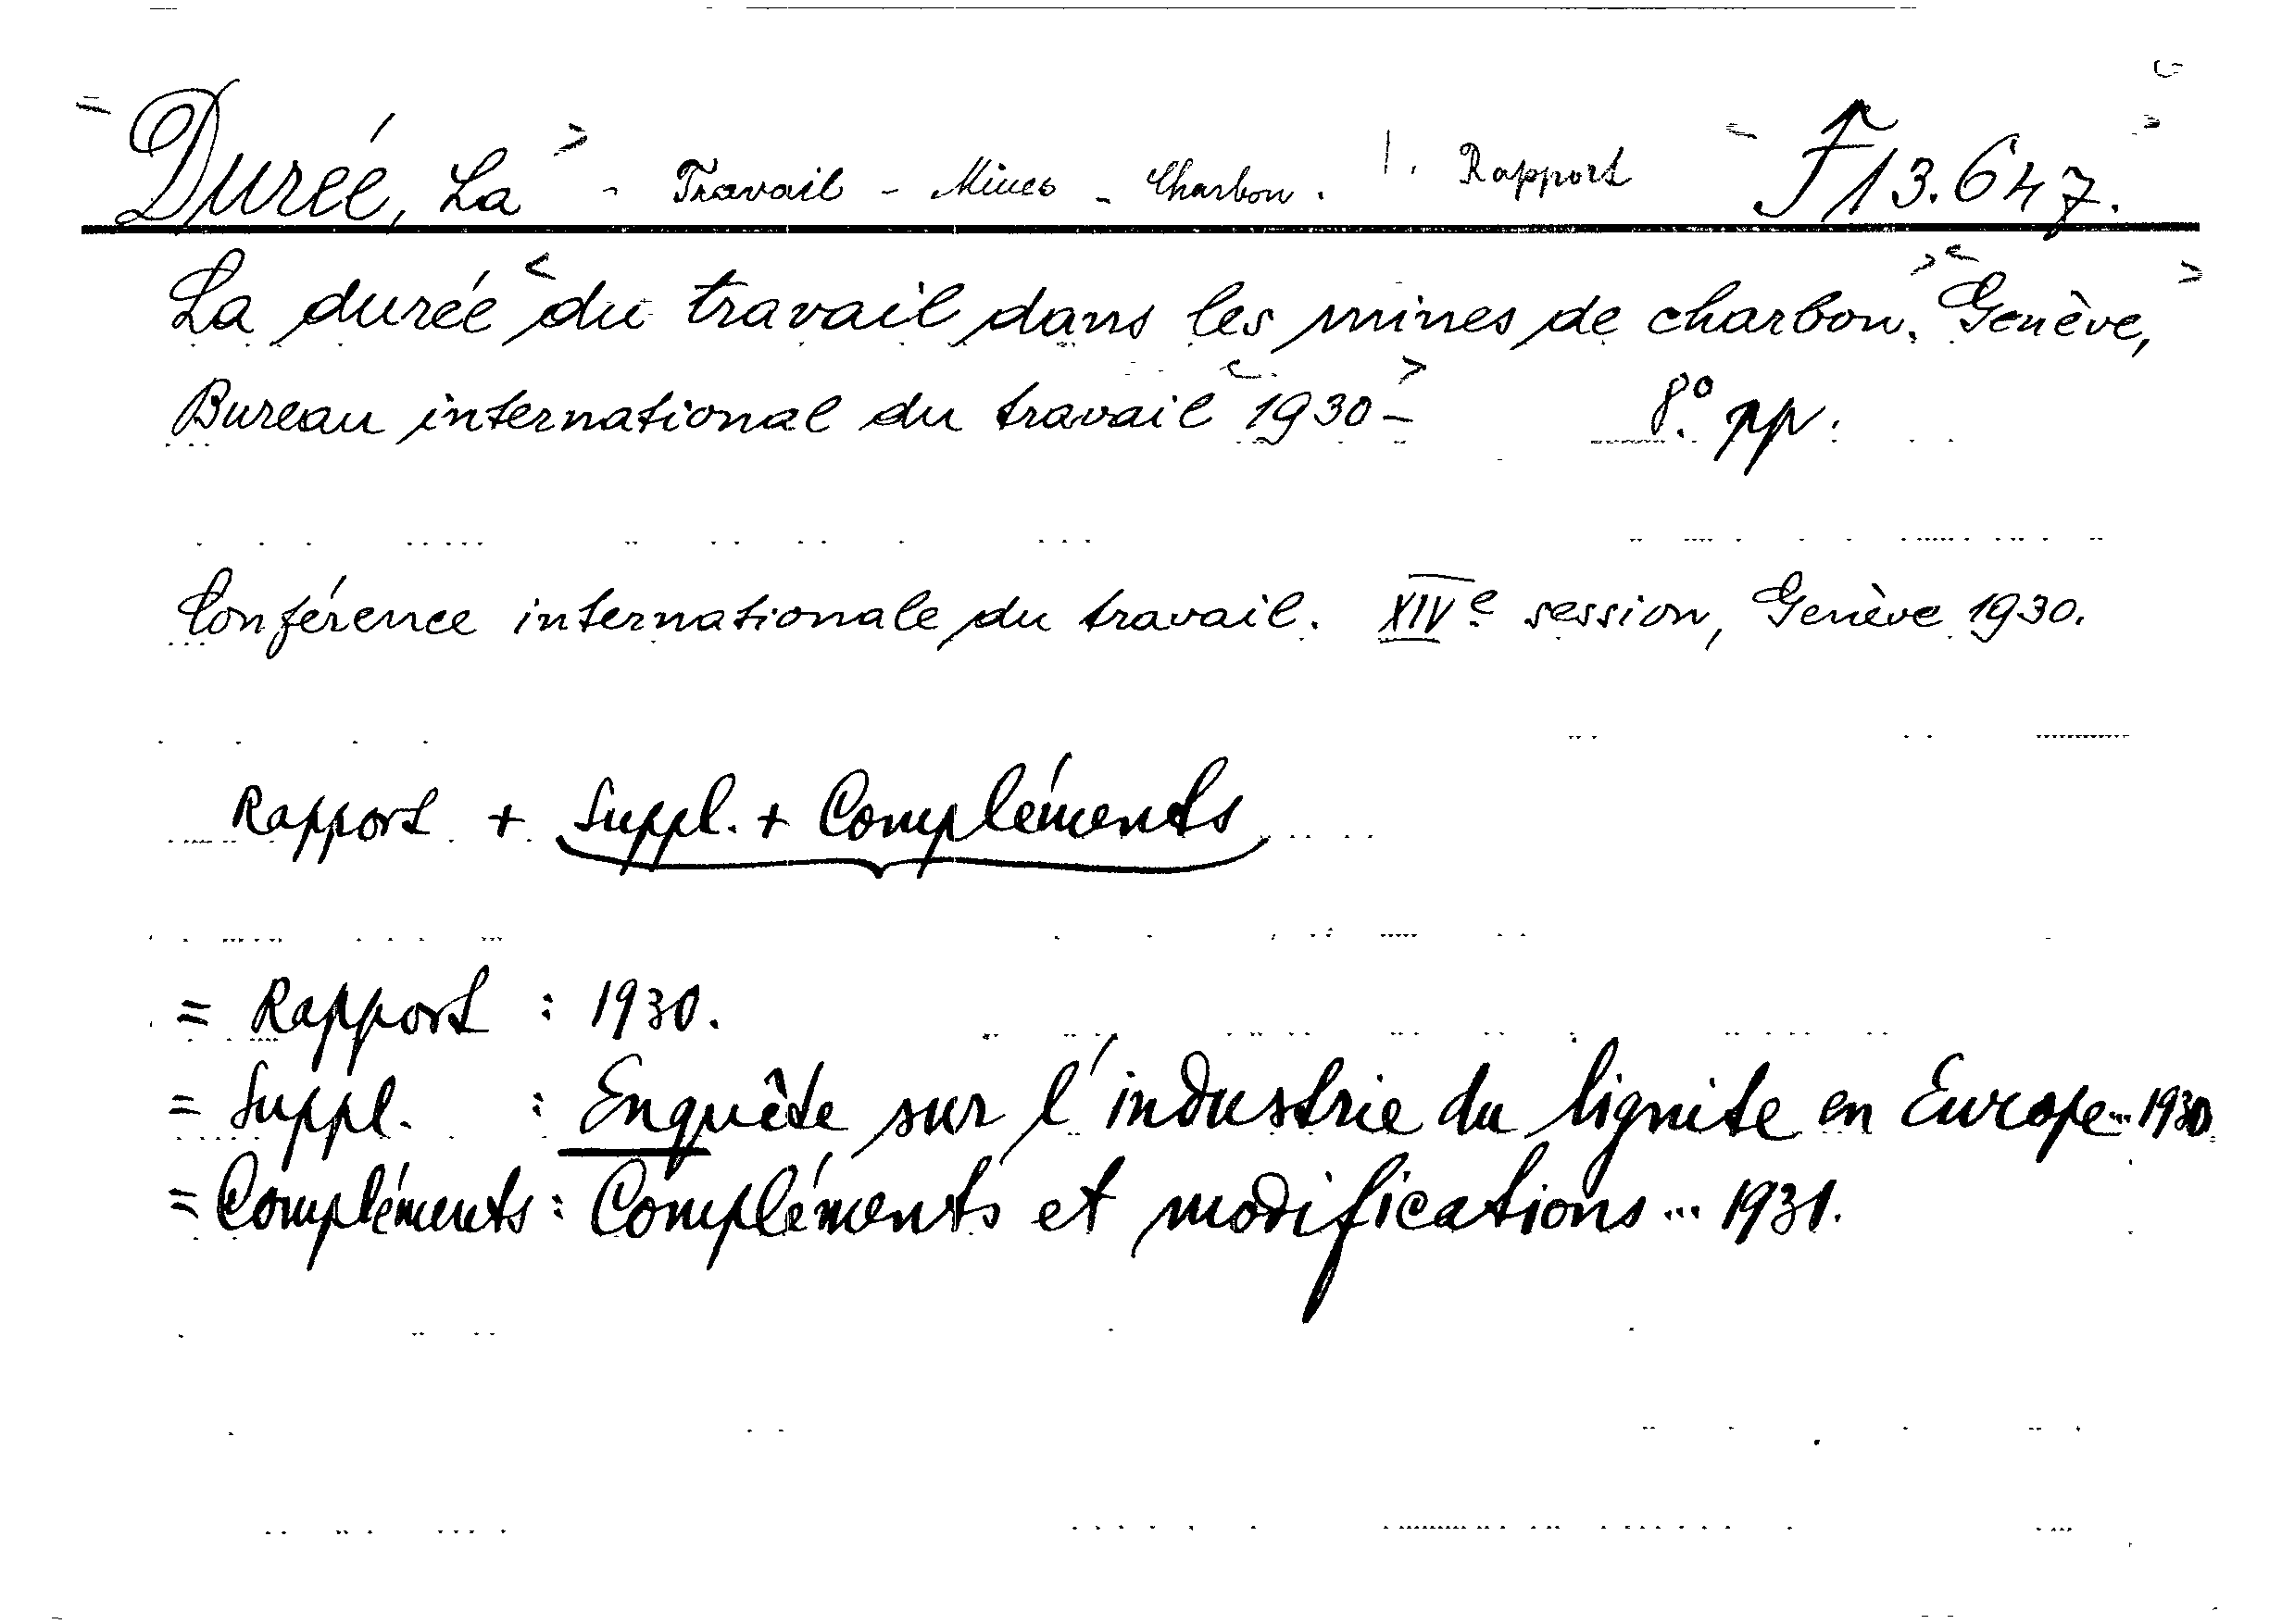 Durée, La - Travail - Mines - Charbon. 1. Rapport F 13.647.
La durée du travail dans les mines de charbon. Genève,
Bureau international du travail 1930- 8º. pp.
Conférence internationale du travail. XIVe session, Genève 1930.
Rapport + Suppl. + Compléments
= Rapport : 1930.
= Suppl. : Enquête sur l'industrie du lignite en Europe... 1930.
= Compléments : Compléments et modifications... 1931.